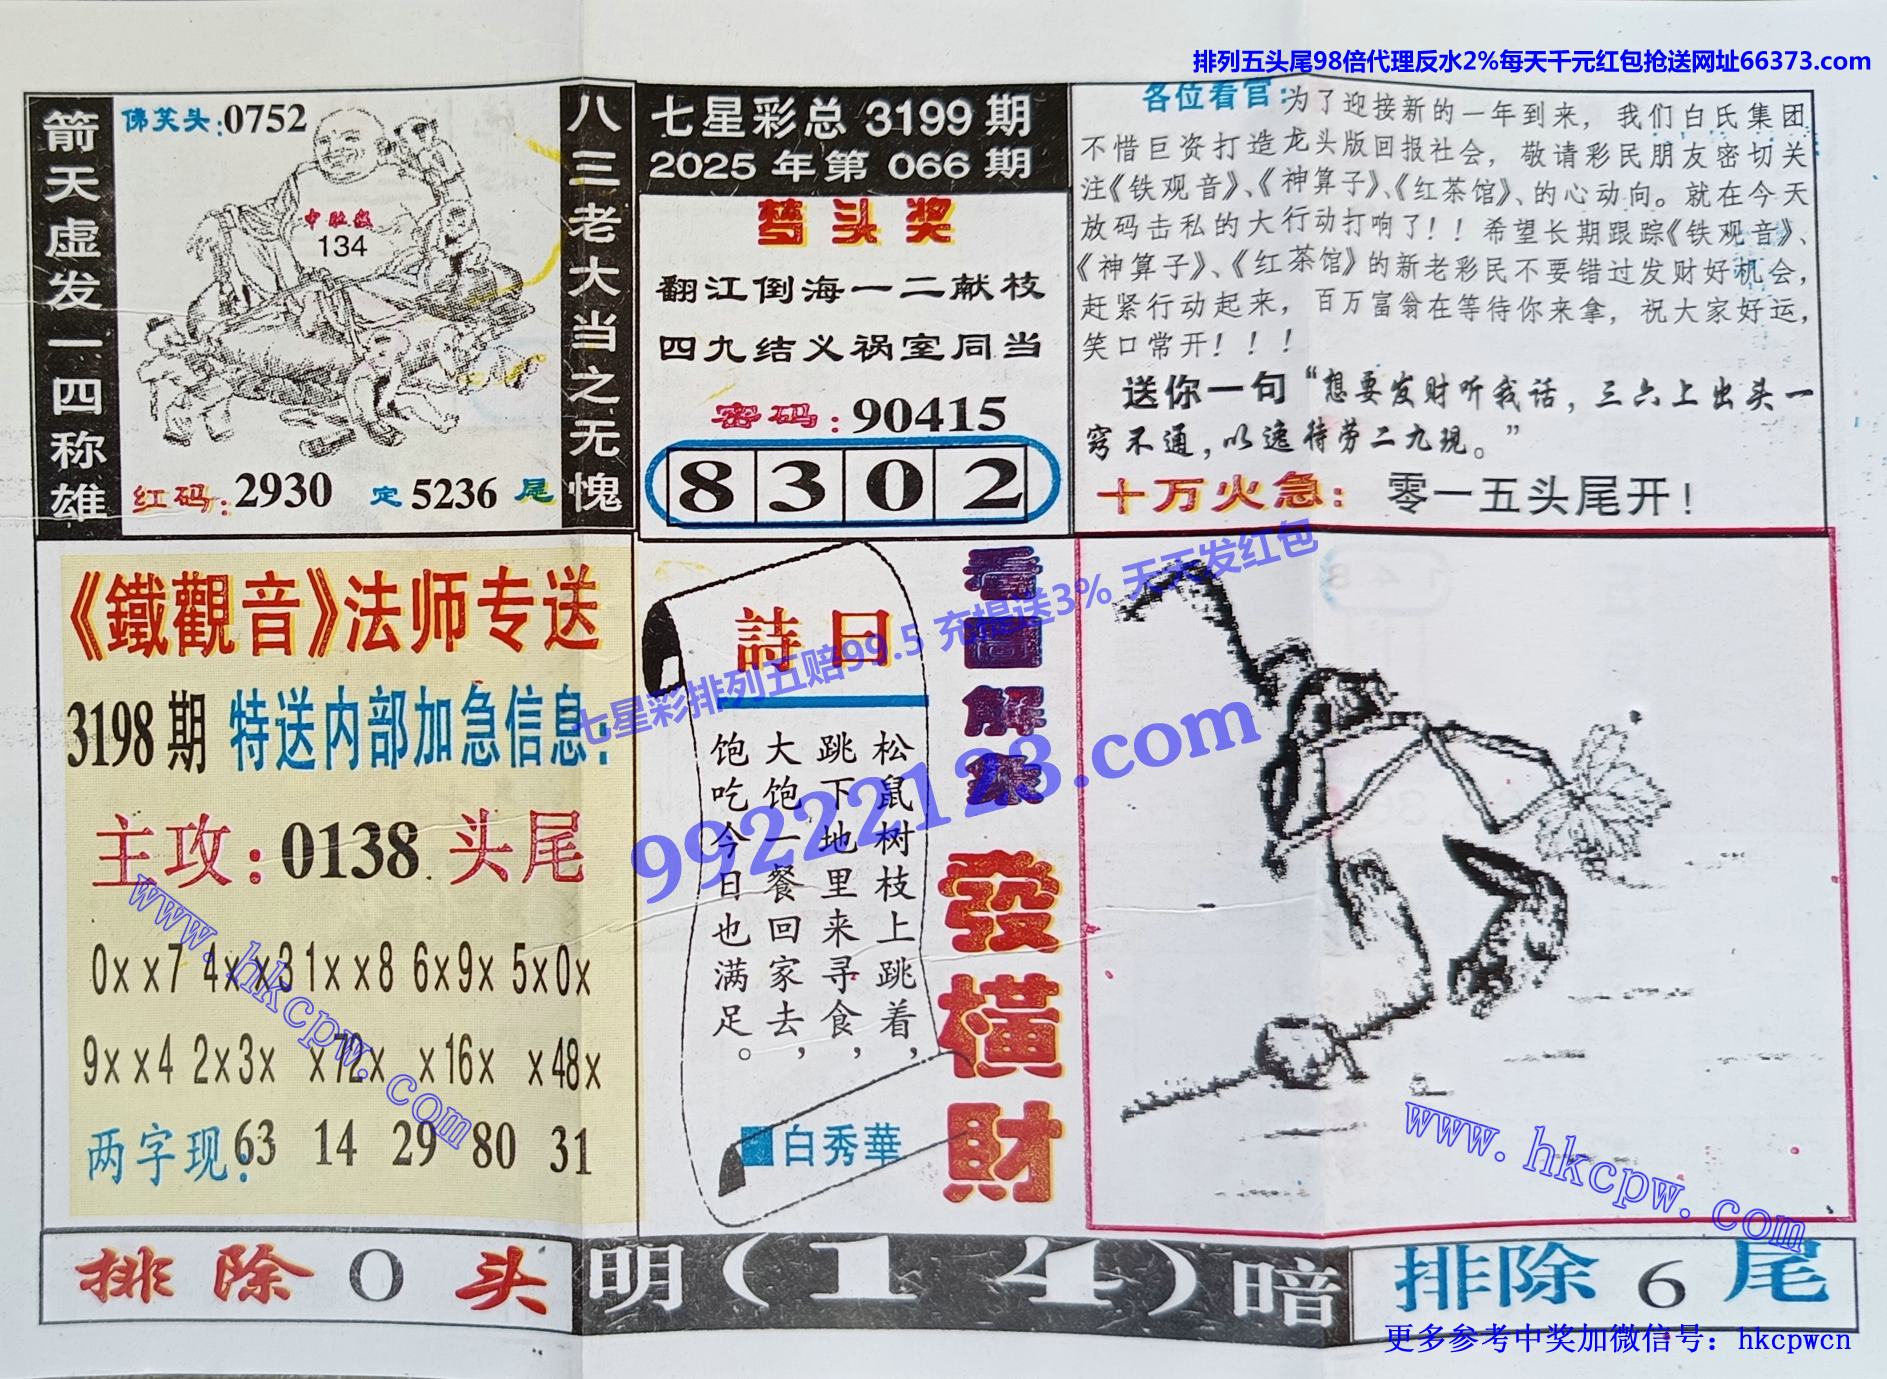 排列五头尾98倍代理反水2%每天千元红包抢送网址66373.com
箭天虚发一四称雄
佛笑头:0752
中肚极
134
红码:2930 定5236尾
八三老大当之无愧
七星彩总 3199 期
2025 年第 066 期
梦头奖
翻江倒海一二献枝
四九结义祸室同当
密码:90415
8 3 0 2
各位看官:为了迎接新的一年到来，我们白氏集团
不惜巨资打造龙头版回报社会，敬请彩民朋友密切关
注《铁观音》、《神算子》、《红茶馆》、的心动向。就在今天
放码击私的大行动打响了！！希望长期跟踪《铁观音》、
《神算子》、《红茶馆》的新老彩民不要错过发财好机会，
赶紧行动起来，百万富翁在等待你来拿，祝大家好运，
笑口常开！！！
送你一句“想要发财听我话，三六上出头一
窍不通，以逸待劳二九现。”
十万火急: 零一五头尾开！
《鐵觀音》法师专送
3198期 特送内部加急信息:
主攻:0138 头尾
0xx7 4xx3 1xx8 6x9x 5x0x
9xx4 2x3x x72x x16x x48x
两字现: 63 14 29 80 31
詩曰
松鼠树枝上跳着，
跳下地里来寻食，
大饱一餐回家去，
饱吃今日也满足。
白秀華
看圖解梁
發橫財
七星彩排列五赔99.5 充提送3% 天天发红包
99222123.com
www.hkcpw.com
www.hkcpw.com
排除0头
明(14)暗
排除6尾
更多参考中奖加微信号：hkcpwcn